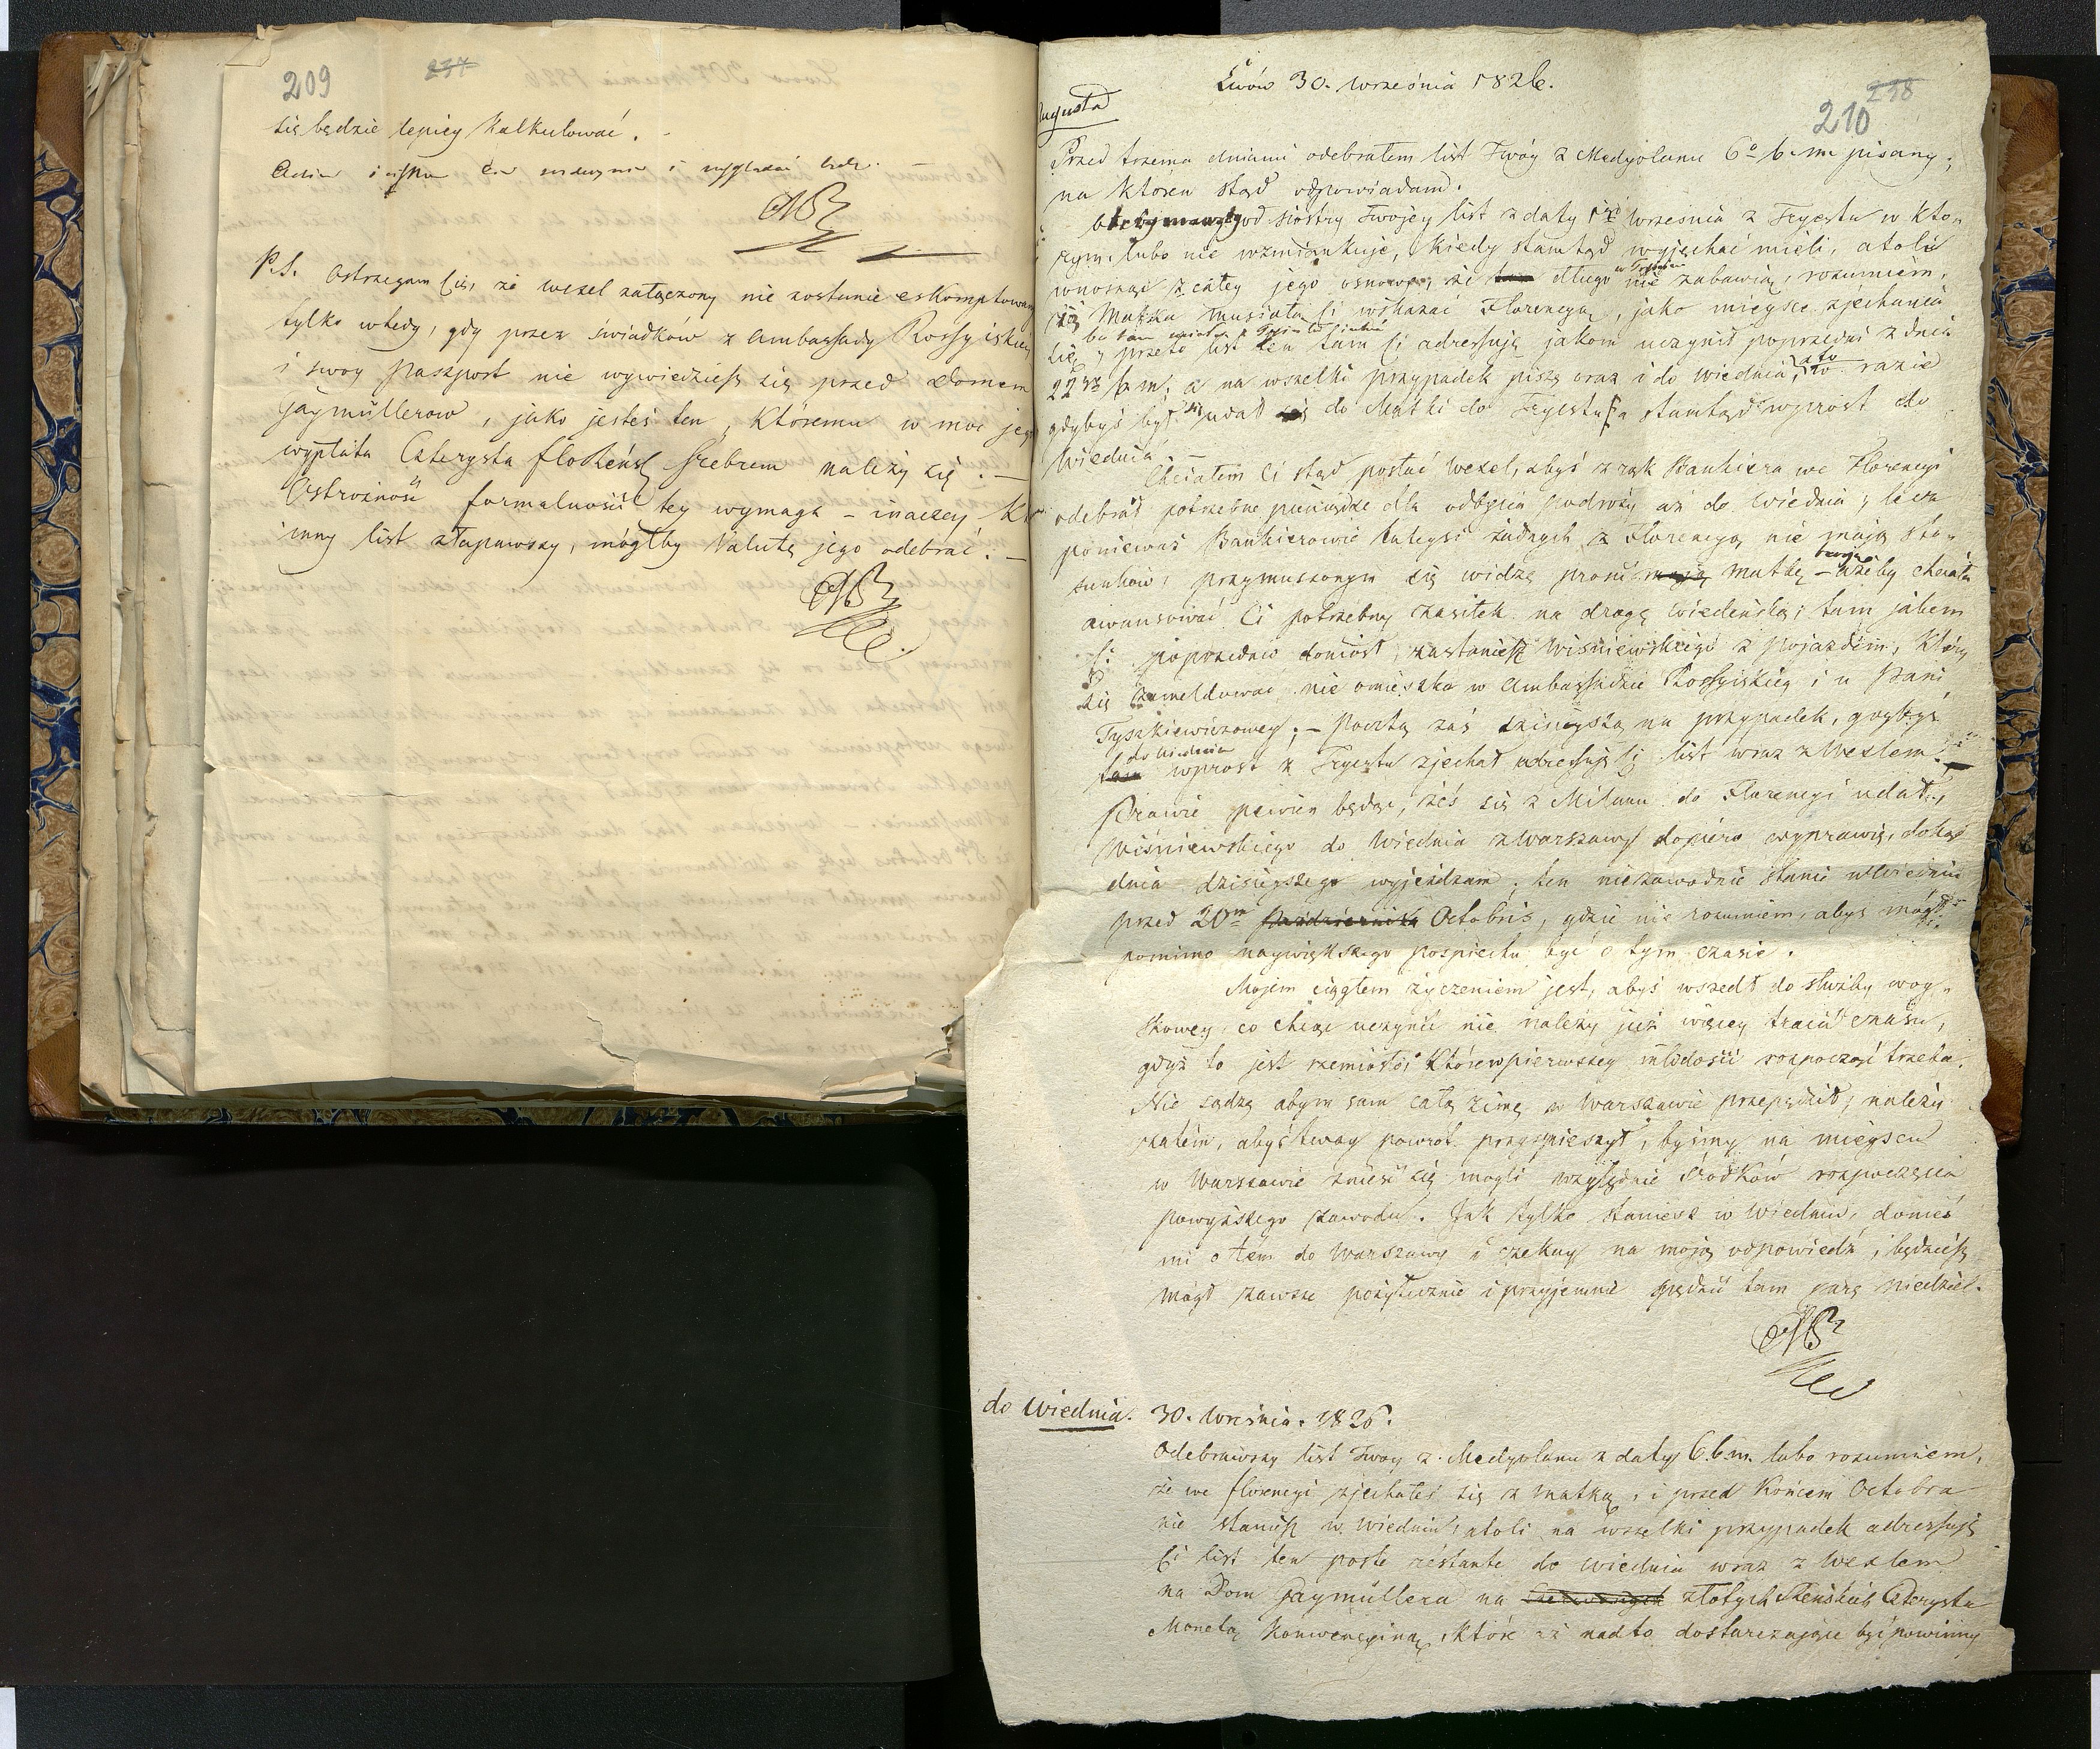 209
237
się będzie lepiey kalkulować.
P.S. Ostrzegam Cię, że wexel załączony nie zostanie eskomptowany
tylko wtedy, gdy przez świadków z Ambassady Rossyiskiey
i swoy Paszport nie wywiedziesz się przed Domem
Gaymüllerow, jako jesteś ten, któremu w moc jego
wypłata Czterysta floReńs. srebrem należy się. —
Ostrożność formalność tey wymaga – inaczey Kto
inny list złapawszy, mógłby Valutę jego odebrać. —
238
210
Lwów 30. Września 1826.
Augusta
Przed trzema dniami odebrałem list Twóy z Medyolanu 6º b. m. pisany,
na któren stąd odpowiadam.
od siostry Twojey list z daty Września z Tryestu w któ-
rym lubo nie wzmiankuje, kiedy stamtąd wyjechać mieli, atoli
wnosząc z całey jego osnowy, że tam długo nie zabawią, rozumiem,
w Tryeście
iż Matka musiała Ci wskazać Florencyą, jako mieysce zjechania
się; przeto list ten tam Ci adressuję jakom uczynił poprzedni z dnia
22go b. m. a na wszelki przypadek piszę oraz i do Wiednia, w razie
gdybyś był się udał do Matki do Tryestu, a stamtąd wprost do
Wiednia.
Chciałem Ci stąd posłać Wexel, abyś z rąk Bankiera we Florencyi
odebrał potrzebne pieniądze dla odbycia podróży aż do Wiednia; lecz
ponieważ Bankierowie tuteysi żadnych z Florencyą nie mają sto-
sunków, przymuszonym się widzę prosić moją Matkę – ażeby chciała
awansować Ci potrzebny zasiłek na drogę Wiedeńską; tam jakem
Ci poprzednio doniósł, zastaniesz Wiśniewskiego z pojazdem, który
się zameldować nie omieszka w Ambassadzie Rossyiskiey i u Pani
Tyszkiewiczowey; – pocztą zaś dzisieyszą na przypadek, gdybyś
do Wiednia
tam wprost z Tryestu zjechał adressuję Ci list wraz z Wexlem.
Prawie pewien będąc, żeś się z Milanu do Florencyi udał,
Wiśniewskiego do Wiednia z Warszawy dopiero wyprawię, dokąd
dnia dzisieyszego wyjeżdżam; ten niezawodnie stanie w Wiedniu
przed 20m Października Octobris, gdzie nie rozumiem, abyś mógł
pomimo naywiększego pospiechu być o tym czasie.
Mojem ciągłem życzeniem jest, abyś wszedł do służby woy-
skowey, co chcąc uczynić nie należy już więcey tracić czasu,
gdyż to jest rzemiosło, które w pierwszey młodości rozpocząć trzeba.
Nie sądzę abym sam całą zimę w Warszawie przepędził; należy
zatém, abyś twoy powrót przyspieszył, byśmy na mieyscu
w Warszawie znieść się mogli względnie środków rozpoczęcia
powyższego zawodu. Jak tylko staniesz w Wiedniu, donieś
mi o tém do Warszawy i czekay na moję odpowiedź, będziesz
mógł zawsze pożytecznie i przyjemnie spędzić tam parę niedziel.
do Wiednia. 30. Września. 1826.
Odebrawszy list Twoy z Medyolanu z daty 6. b. m. lubo rozumiem,
że we florencyi zjechałeś się z Matką, i przed Końcem Octobra
nie staniesz w Wiedniu, atoli na wszelki przypadek adressuję
Ci list ten poste restante do Wiednia wraz z Wexlem
na Dom Gaymüllera na złotych Reńskich Czterysta
Monetą Konwencyiną, które aż nadto dostarczające być powinny